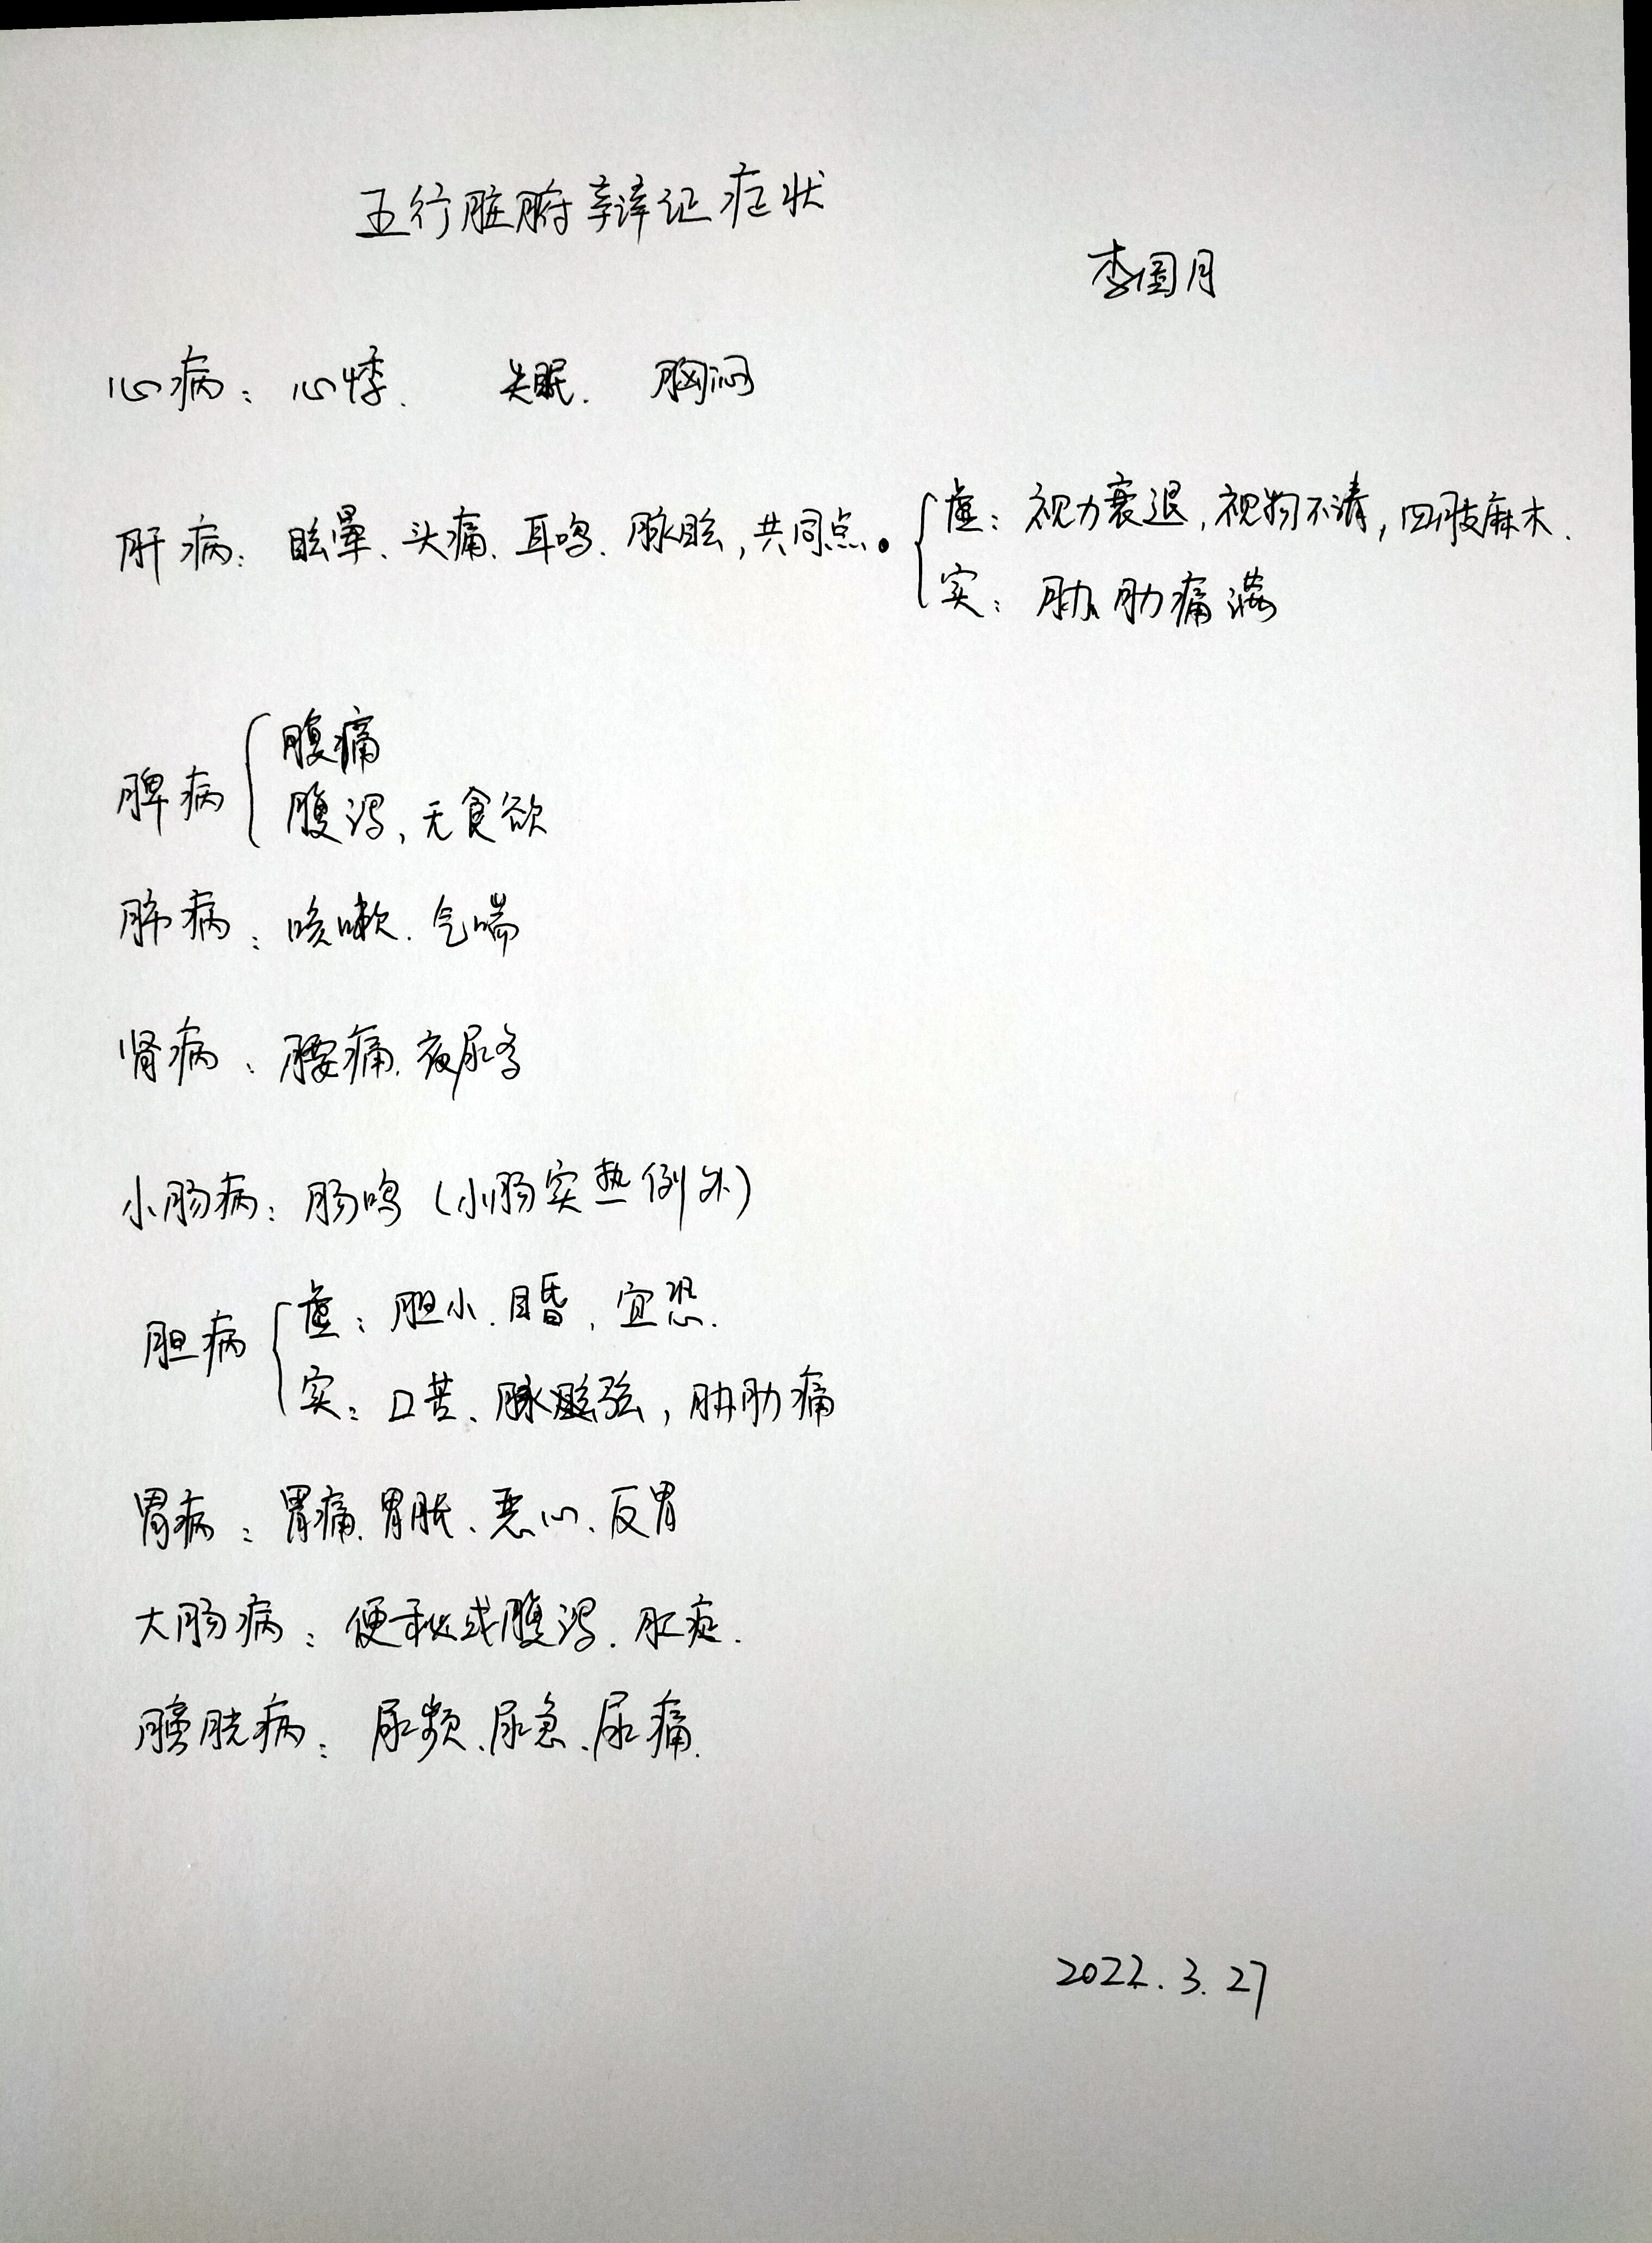 五行脏腑辩证症状
李国月
心病：心悸．失眠．胸闷
肝病：眩晕、头痛、耳鸣、脉眩，共同点。
虚：视力衰退，视物不清，四肢麻木．
实：胁肋痛满
脾病
腹痛
腹泻，无食欲
肺病：咳嗽．气喘
肾病：腰痛．夜尿多
小肠病：肠鸣（小肠实热例外）
胆病
虚：胆小．目昏，宜恐．
实：口苦、脉弦，胁肋痛
胃病：胃痛、胃胀、恶心、反胃
大肠病：便秘或腹泻．肛症．
膀胱病：尿频、尿急、尿痛．
2022.3.27